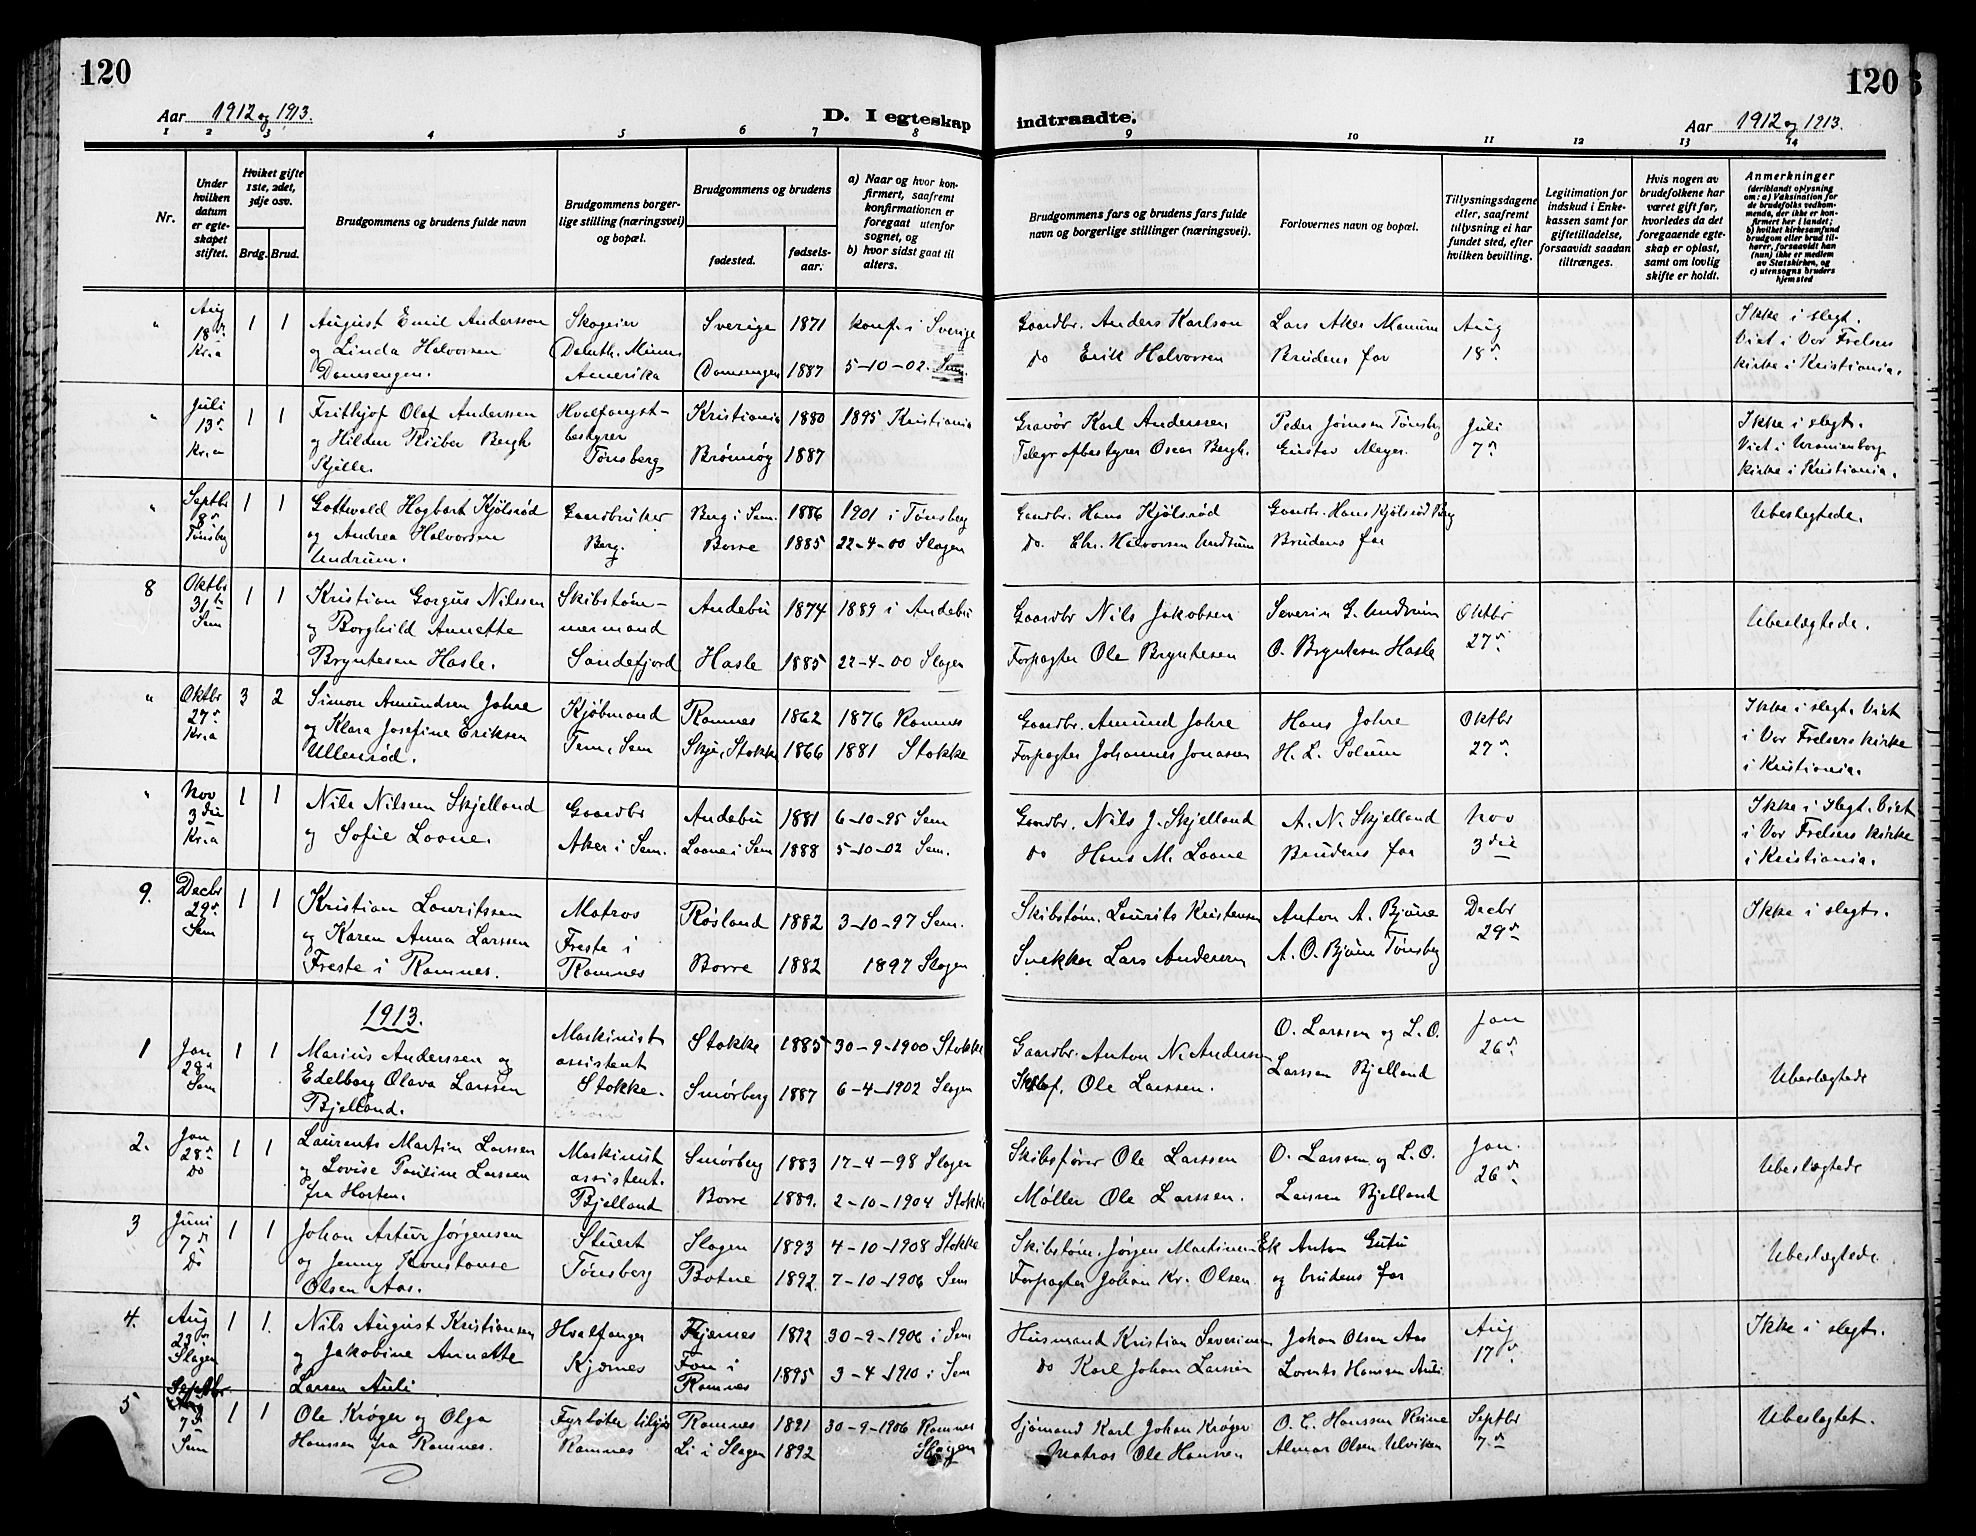 120
120
Aar 1912 og 1913.
D. I egteskap
indtraadte.
Aar 1912 og 1913.
1 2 3 4 5 6 7 8 9 10 11 12 13 14
Nr.
Under hvilken datum er egteskapet stiftet.
Hvilket gifte 1ste, 2det, 3dje osv.
Brdg. Brud.
Brudgommens og brudens fulde navn
Brudgommens borgerlige stilling (næringsvei) og bopæl.
Brudgommens og brudens
fødested.
fødselsaar.
a) Naar og hvor konfirmert, saafremt konfirmationen er foregaat utenfor sognet, og
b) hvor sidst gaat til alters.
Brudgommens fars og brudens fars fulde navn og borgerlige stillinger (næringsvei).
Forlovernes navn og bopæl.
Tillysningsdagene eller, saafremt tillysning ei har fundet sted, efter hvilken bevilling.
Legitimation for indskud i Enkekassen samt for giftetilladelse, forsaavidt saadan tiltrænges.
Hvis nogen av brudefolkene har været gift før, hvorledes da det foregaaende egteskap er opløst, samt om lovlig skifte er holdt.
Anmerkninger
(deriblandt oplysning om: a) Vaksination for de brudefolks vedkommende, der ikke er konfirmert her i landet; b) hvilket kirkesamfund brudgom eller brud tilhører, forsaavidt han (hun) ikke er medlem av Statskirken, og c) utensogns bruders hjemsted
" Aug 18de Kr.a 1 1 August Emil Andersson og Linda Halvorsen Domsengen. Skogeier Duluth. Minn. Amerika Sverige 1871 konf. i Sverige Domsengen 1887 5-10-02. Sem. Gaardbr. Anders Karlson do Erik Halvorsen Lars Aker Brudens far Aug 18de Ikke i slegt. Viet i Vor Frelsers kirke i Kristiania.
" Juli 13de Kr.a 1 1 Frithjof Olaf Anderssen og Hilden Riiber Bergh Kjelle. Hvalfangstbestyrer Tønsberg Kristiania 1880 1895 Kristiania Brønnøy 1887 Gravør Karl Anderssen Telegrafbestyrer Oscar Bergh. Peder Jønsen Tønsberg Gustav Meyer. Juli 7de Ikke i slegt. Viet i Uranienborg kirke i Kristiania.
" Septbr 8de Tønsberg 1 1 Gottwald Hagbart Kjølsrød og Andrea Halvorsen Undrum. Gaardbruker Berg. Berg i Sem. 1886 1901 i Tønsberg Borre 1885 22-4-00 Slagen Gaardbr. Hans Kjølsrød do. Chr. Halvorsen Undrum Gaardb. Hans Kjølsrød Berg Brudens far Ubeslegtede.
8 Oktbr 31te Sem 1 1 Kristian Gorgus Nilssen og Borghild Annette Bryntesen Hasle. Skibstømmermand Sandefjord Andebu 1874 1889 i Andebu Hasle 1885 22-4-00 Slagen Gaardbr Nils Jakobsen Forpagter Ole Bryntesen Severin G. Undrum O. Bryntesen Hasle Oktbr 27de Ubeslægtede.
" Oktbr 27de Kr.a 3 2 Simon Amundsen Jahre og Klara Josefine Eriksen Ullensrød. Kjøbmand Tem, Sem Ramnes 1862 1876 Ramnes Skje, Stokke 1866 1881 Stokke Gaardbr. Amund Jahre Forpagter Johannes Jonassen Hans Jahre H. L. Solum Oktbr 27de Ikke i slegt. Viet i Vor Frelsers kirke i Kristiania.
" Nov 3die Kr.a 1 1 Nils Nilssen Skjelland og Sofie Loone. Gaardbr Aker i Sem. Andebu 1881 6-10-95 Sem Loone i Sem 1888 5-10-02 Sem. Gaardbr. Nils J. Skjelland do Hans M. Loone A. N. Skjelland Brudens far Nov 3die Ikke i slegt. Viet i Vor Frelsers kirke i Kristiania.
9. Decbr 29de Sem 1 1 Kristian Lauritssen og Karen Anna Larssen Freste i Ramnes. Matros Freste i Ramnes Røsland 1882 3-10-97 Sem. Borre 1882 1897 Slagen Skibstøm. Laurits Kristensen Snekker Lars Andersen Anton A. Bjune A. O. Bjune Tønsberg Decbr 29de Ikke i slegt.
1913.
1 Jan 28de Sem 1 1 Marius Anderssen og Edelborg Olava Larssen Bjelland. Maskinistassistent Stokke. Stokke 1885 30-9-1900 Stokke Smørberg 1887 6-4-1902 Slagen Gaardbr. Anton N. Andersen Skibsf. Ole Larssen. O. Larssen og L. O. Larssen Bjelland Jan 26de Ubeslægtede
2. Jan 28de do 1 1 Laurents Martin Larssen og Lovise Pauline Larssen fra Horten. Maskinistassistent. Bjelland Smørberg 1883 17-4-98 Slagen Borre 1889. 2-10-1904 Stokke Skibsfører Ole Larssen Møller Ole Larssen. O. Larssen og L. O. Larssen Bjelland Jan. 26de Ubeslægtede
3 Juni 7de do 1 1 Johan Artur Jørgensen og Jenny Konstanse Olsen Aas. Stuert Tønsberg Slagen 1893 4-10-1908 Stokke Botne 1892. 7-10-1906 Sem Skibstøm. Jørgen Martinsen Ek Forpagter Johan Kr. Olsen. Anton Gutu og brudens far Ubeslægtede
4. Aug 23de Slagen 1 1. Nils August Kristiansen og Jakobine Annette Larsen Auli Hvalfanger Kjærnes Kjærnes 1892 30-9-1906 i Sem Fon i Ramnes 1895 3-4-1910 i Sem Husmand Kristian Severinsen do Karl Johan Larsen Johan Olsen Aas Lorents Hansen Auli Aug 17de Ikke i slegt.
5 Septbr 7de Sem 1 1 Ole Krøger og Olga Hanssen fra Ramnes. Fyrbøter Ramnes Ramnes 1891 30-9-1906 Ramnes Li i Slagen 1892 Slagen Sjømand Karl Johan Krøger Matros Ole Hanssen O. C. Hanssen Reine Almar Olsen Ulviken Septbr 7de Ubeslegtet.